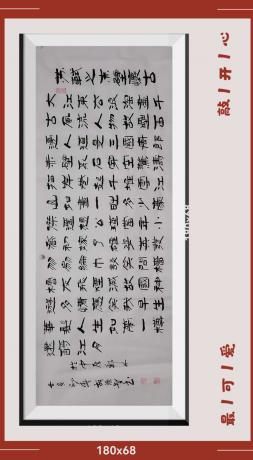 蘇軾之赤壁懷古
大江東去浪淘盡千
古風流人物故壘西
邊人道是三國周郎
赤壁乱石崩雲驚濤
拍岸捲起千堆雪江
山如畫一時多少豪
傑遥想公瑾當年小
喬初嫁了雄姿英發
羽扇綸巾談笑間檣
櫓灰飛煙滅故國神
遊多情應笑我早生
華髮人生如夢一
尊還酹江月
敲/开/心
最/可/爱
180x68
180x68